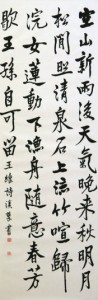 空山新雨後天氣晚来秋明月
松間照清泉石上流竹喧歸
浣女蓮動下漁舟隨意春芳
歇王孫自可留 王維詩 書